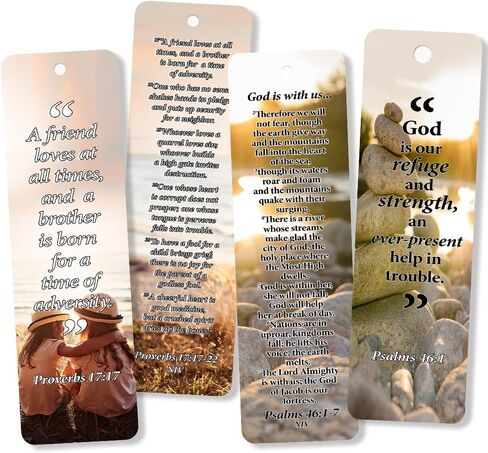 “
A friend
loves at
all times,
and a
brother
is born
for a
time of
adversity.
”
Proverbs 17:17
17A friend loves at all
times, and a brother
is born for a time
of adversity.
18One who has no sense
shakes hands in pledge
and puts up security
for a neighbor.
19Whoever loves a
quarrel loves sin;
whoever builds
a high gate invites
destruction.
20One whose heart
is corrupt does not
prosper; one whose
tongue is perverse
falls into trouble.
21To have a fool for a
child brings grief;
there is no joy for
the parent of a
godless fool.
22A cheerful heart is
good medicine,
but a crushed spirit
dries up the bones.
Proverbs 17:17-22
NIV
God is with us...
2Therefore we will
not fear, though
the earth give way
and the mountains
fall into the heart
of the sea,
3though its waters
roar and foam
and the mountains
quake with their
surging.
4There is a river
whose streams
make glad the
city of God, the
holy place where
the Most High
dwells.
5God is within her,
she will not fall;
God will help
her at break of day.
6Nations are in
uproar, kingdoms
fall; he lifts his
voice, the earth
melts.
7The Lord Almighty
is with us; the God
of Jacob is our
fortress.
Psalms 46:1-7
NIV
“
God
is our
refuge
and
strength,
an
ever-present
help in
trouble.
”
Psalms 46:1